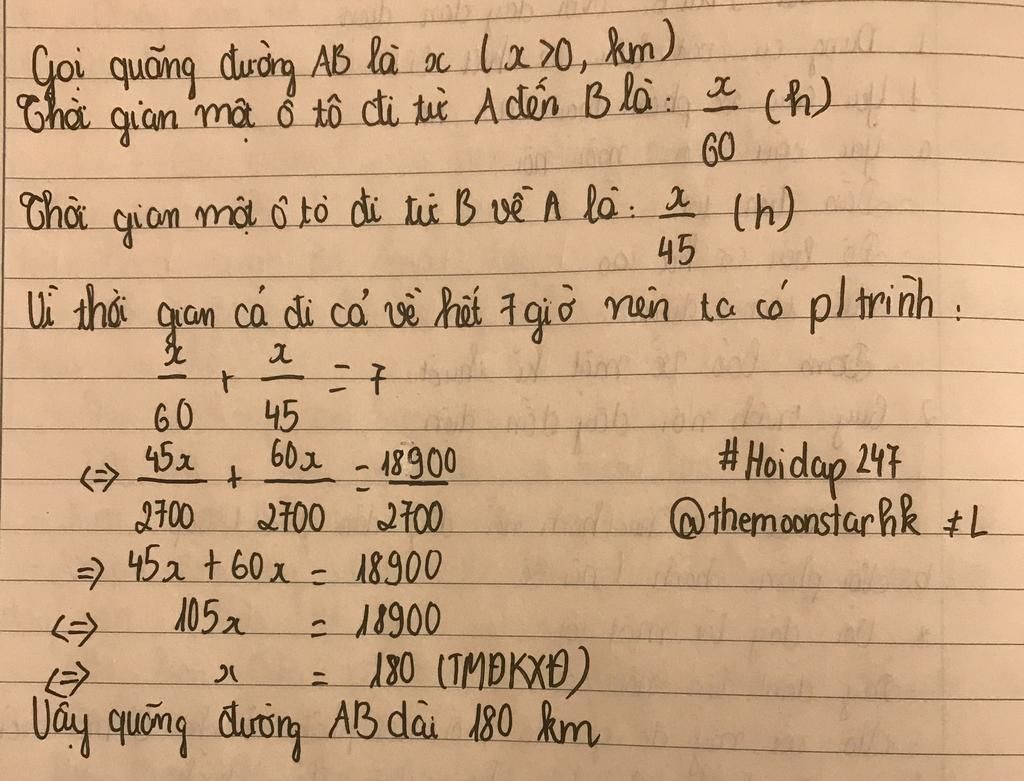 Gọi quãng đường AB là x (x>0, km)
Thời gian một ô tô đi từ A đến B là: x/60 (h)
Thời gian một ô tô đi từ B về A là: x/45 (h)
Vì thời gian cả đi cả về hết 7 giờ nên ta có p/trình:
x/60 + x/45 = 7
<=> 45x/2700 + 60x/2700 = 18900/2700
#Hoidap247
@themoonstarhk ≠L
=> 45x + 60x = 18900
<=> 105x = 18900
<=> x = 180 (TMĐKXĐ)
Vậy quãng đường AB dài 180 km